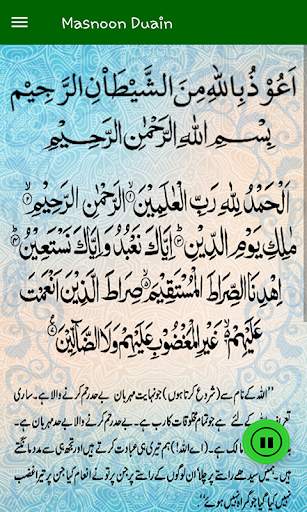 Masnoon Duain
اَعُوْذُ بِاللّٰهِ مِنَ الشَّيْطٰانِ الرَّجِيْمِ
بِسْمِ اللّٰهِ الرَّحْمٰنِ الرَّحِيْمِ
اَلْحَمْدُ لِلّٰهِ رَبِّ الْعٰلَمِيْنَ ۙ﴿۱﴾ الرَّحْمٰنِ الرَّحِيْمِ ۙ﴿۲﴾
مٰلِكِ يَوْمِ الدِّيْنِ ؕ﴿۳﴾ اِيَّاكَ نَعْبُدُ وَاِيَّاكَ نَسْتَعِيْنُ ؕ﴿۴﴾
اِهْدِنَا الصِّرَاطَ الْمُسْتَقِيْمَ ۙ﴿۵﴾ صِرَاطَ الَّذِيْنَ اَنْعَمْتَ
عَلَيْهِمْ ۙ﴿۶﴾ غَيْرِ الْمَغْضُوْبِ عَلَيْهِمْ وَلَا الضَّآلِّيْنَ
”اللہ کے نام سے (شروع کرتا ہوں) جو نہایت مہربان بے حد رحم کرنے والا ہے۔ ساری
کے لئے ہے جو تمام مخلوقات کا رب ہے۔ بے حد رحم کرنے والا بے حد مہربان ہے۔
مالک ہے۔ (اے اللہ!) ہم تیری ہی عبادت کرتے ہیں اور تجھ ہی سے مدد مانگتے
ہمیں سیدھے راستے پر چلا‘ ان لوگوں کے راستے پر جن پر تو نے انعام کیا جن پر تیرا غضب
نہیں کیا گیا جو گمراہ نہیں ہوئے“